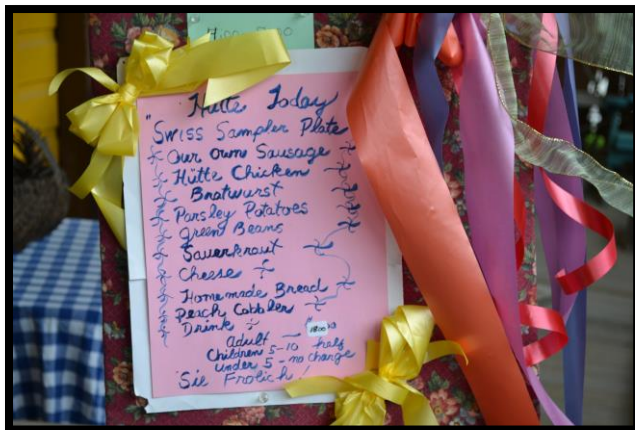 Hütte Today
"Swiss Sampler Plate
Our Own Sausage
Hütte Chicken
Bratwurst
Parsley Potatoes
Green Beans
Sauerkraut
Cheese
Homemade Bread
Peach Cobbler
Drink
Adult —
Children 5-10 half
under 5 - no charge
"Sie Frolich!